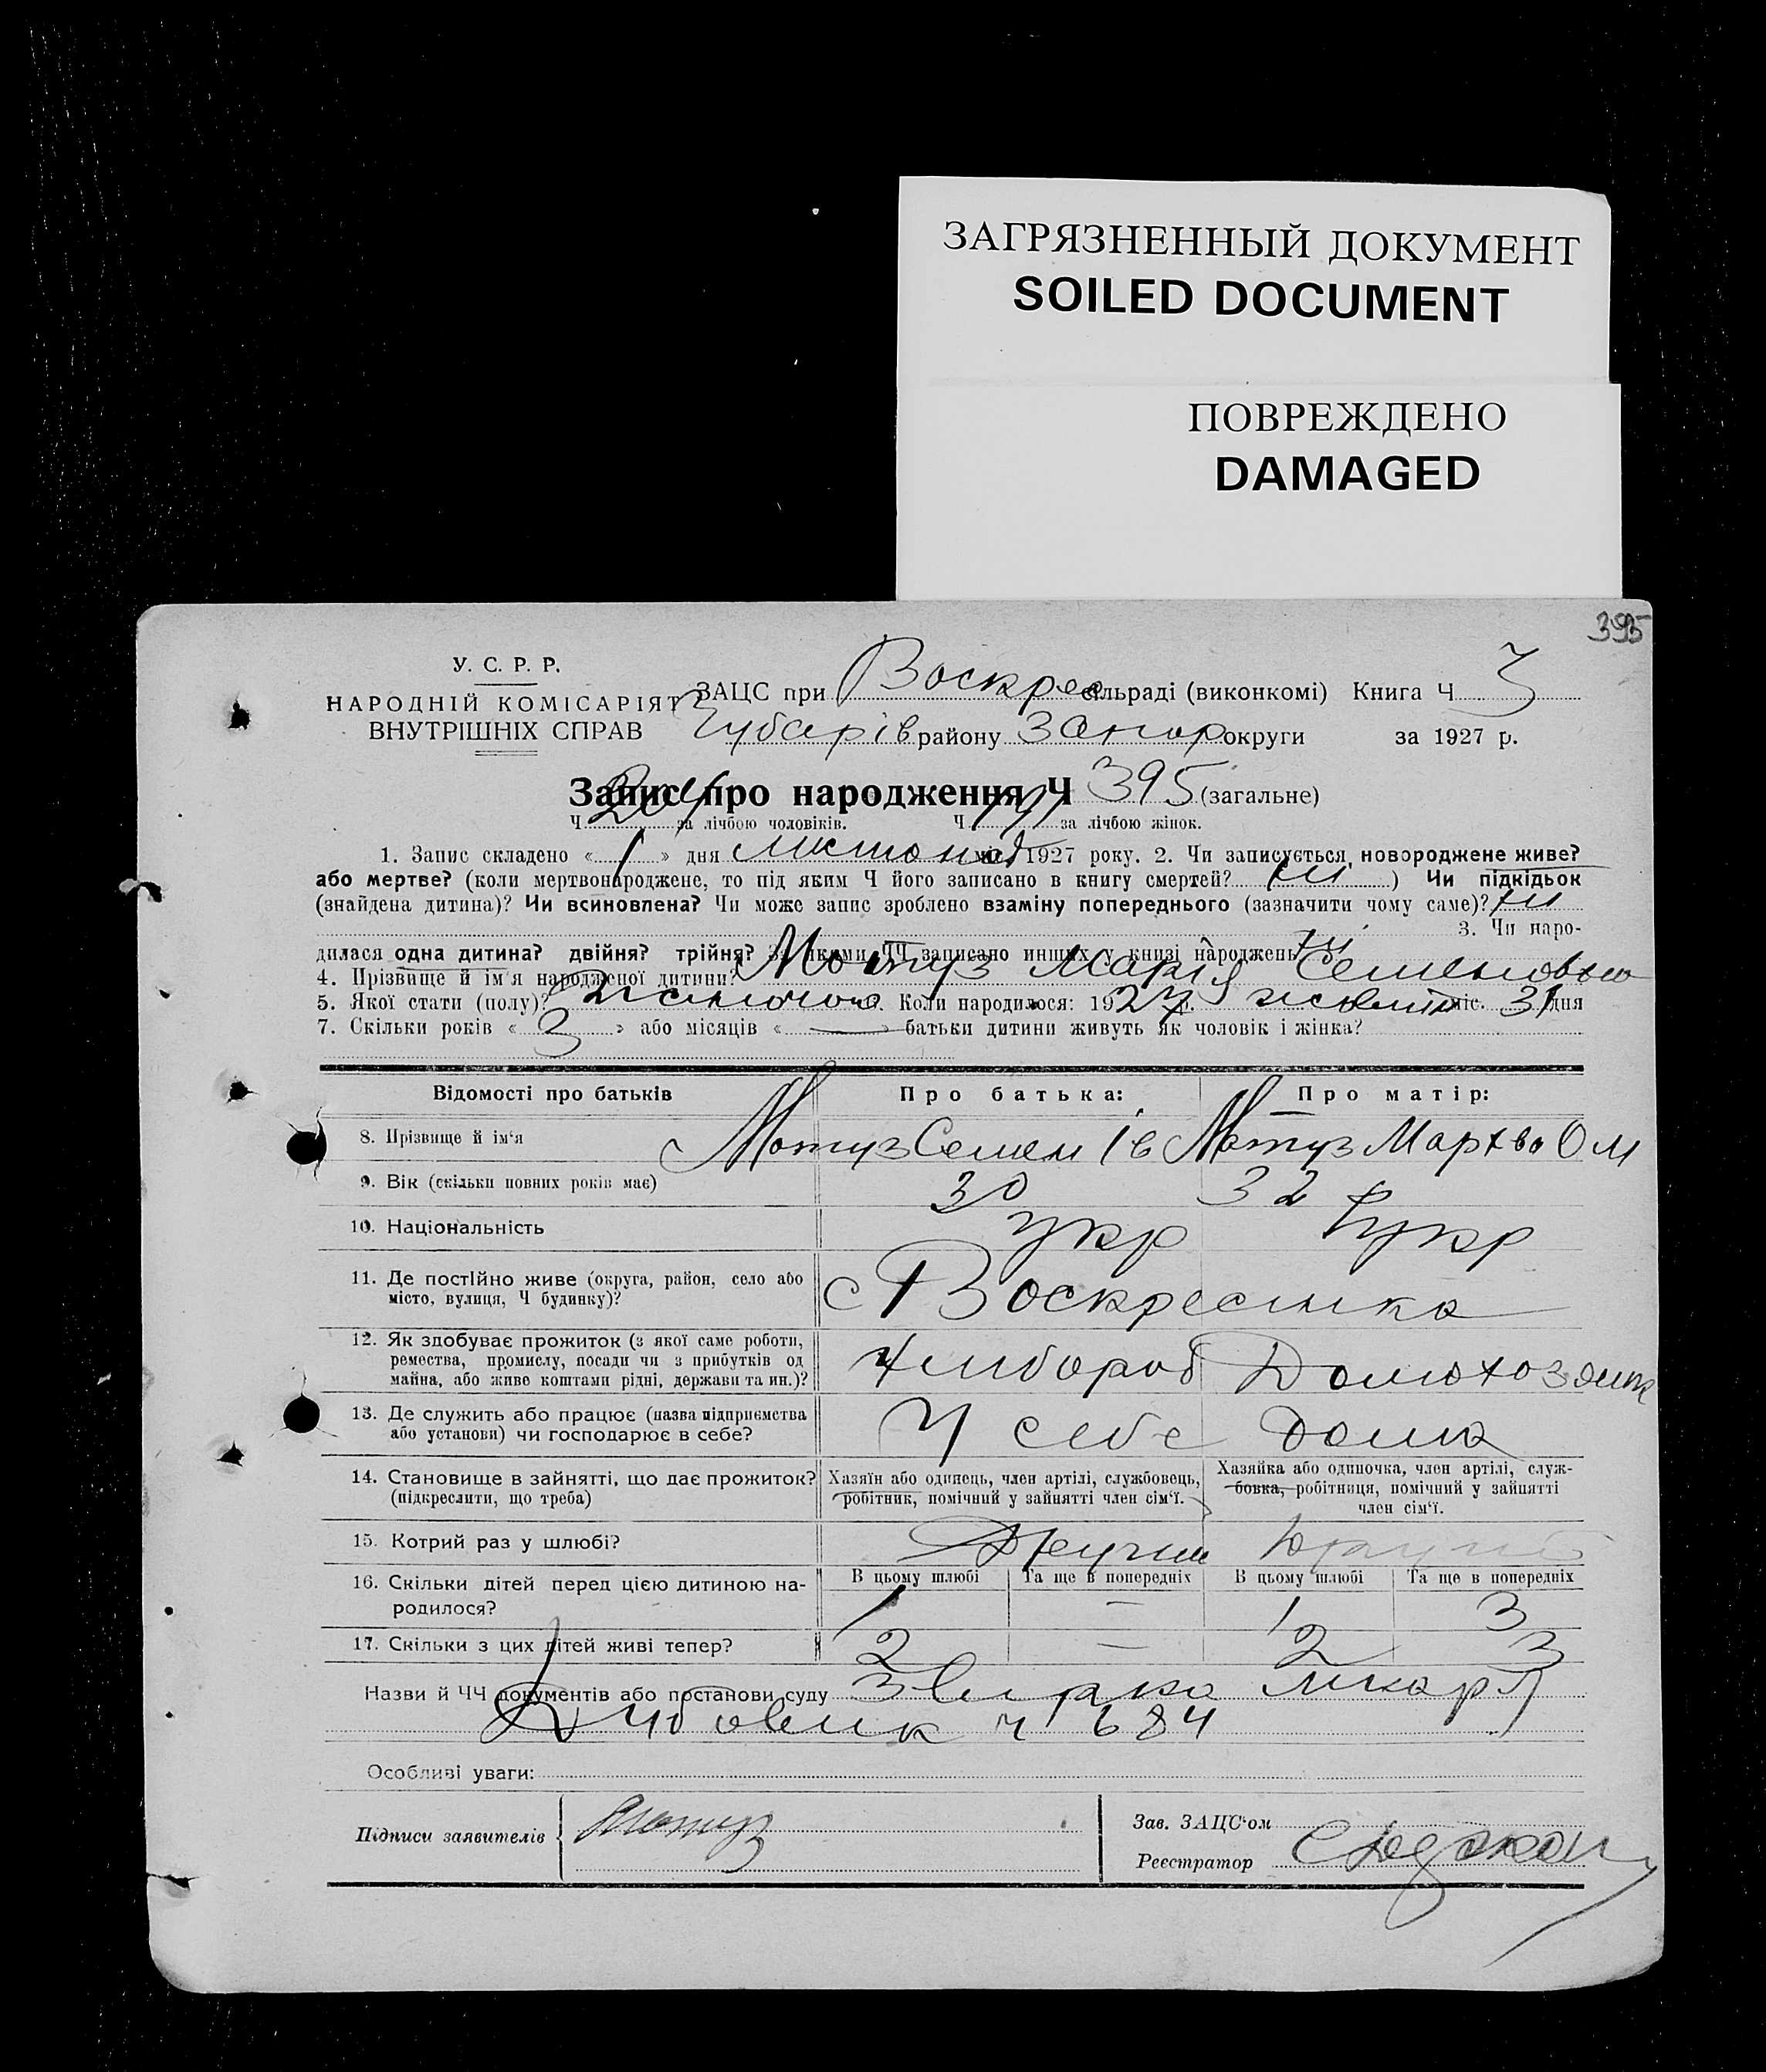 ЗАГРЯЗНЕННЫЙ ДОКУМЕНТ
SOILED DOCUMENT
ПОВРЕЖДЕНО
DAMAGED
395
У. С. Р. Р.
НАРОДНІЙ КОМІСАРІЯТ
ВНУТРІШНІХ СПРАВ
ЗАЦС при Воскрес сільраді (виконкомі) Книга Ч 3
Губарів району Запор округи за 1927 р.
Запис про народження Ч 395 (загальне)
Ч 204 за лічбою чоловіків. Ч 191 за лічбою жінок.
1. Запис складено « 1 » дня листопад міс. 1927 року. 2. Чи записується новороджене живе?
або мертве? (коли мертвонароджене, то під яким Ч його записано в книгу смертей? ні ) Чи підкідьок
(знайдена дитина)? Чи всиновлена? Чи може запис зроблено взаміну попереднього (зазначити чому саме)? ні
3. Чи наро-
дилася одна дитина? двійня? трійня? За якими ЧЧ записано инших у книзі народжень? ні
4. Прізвище й ім'я народженої дитини? Мотуз Марія Семеновна
5. Якої стати (полу)? жіночого. Коли народилося: 1927 р. жовтн міс. 31 дня
7. Скільки років « 3 » або місяців « — » батьки дитини живуть як чоловік і жінка?
Відомості про батьків Про батька: Про матір:
8. Прізвище й ім'я Мотуз Семен Ів Мотуз Марх Ом
9. Вік (скільки повних років має) 30 32
10. Національність Укр Укр
11. Де постійно живе (округа, район, село або
місто, вулиця, Ч будинку)? с Воскресинка
12. Як здобуває прожиток (з якої саме роботи,
ремества, промислу, посади чи з прибутків од
майна, або живе коштами рідні, держави та ин.)? Хлібороб Домохозяйк
13. Де служить або працює (назва підприємства
або установи) чи господарює в себе? У себе дома
14. Становище в зайнятті, що дає прожиток?
(підкреслити, що треба)
Хазяїн або одинець, член артілі, службовець,
робітник, помічний у зайнятті член сім'ї.
Хазяйка або одиночка, член артілі, служ-
бовка, робітниця, помічний у зайнятті
член сім'ї.
15. Котрий раз у шлюбі?
В цьому шлюбі Та ще в попередніх В цьому шлюбі Та ще в попередніх
16. Скільки дітей перед цією дитиною на-
родилося? 1 — 1 3
17. Скільки з цих дітей живі тепер? 2 — 2 3
Назви й ЧЧ документів або постанови суду лікаря
ч 684
Особливі уваги:
Підписи заявителів Мотуз
Зав. ЗАЦС'ом
Реєстратор